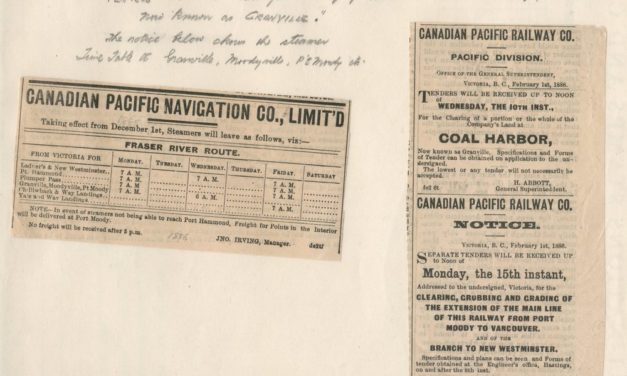 now known as GRANVILLE."
The notice below shows the steamer
Time Table to Granville, Moodyville, Pt Moody etc.
CANADIAN PACIFIC NAVIGATION CO., LIMIT'D
Taking effect from December 1st, Steamers will leave as follows, vis:—
FRASER RIVER ROUTE.
FROM VICTORIA FOR MONDAY. TUESDAY. WEDNESDAY. THURSDAY. FRIDAY SATURDAY
Ladner's & New Westminster.. 7 A. M. 7 A. M. 7 A. M.
Pt. Hammond 7 A. M. 7 A. M.
Plumper Pass 7 A. M. 7 A. M.
Granville, Moodyville, Pt Moody 7 A. M. 7 A. M.
Ch-lliwhack & Way Landings.
Yale and Way Landings. 6 A. M. 7 A. M.
NOTE.—In event of steamers not being able to reach Port Hammond, Freight for Points in the Interior
will be delivered at Port Moody.
No freight will be received after 5 p.m.
1886
JNO. IRVING, Manager.
CANADIAN PACIFIC RAILWAY CO.
PACIFIC DIVISION.
OFFICE OF THE GENERAL SUPERINTENDENT,
VICTORIA, B. C., February 1st, 1886.
TENDERS WILL BE RECEIVED UP TO NOON
of
WEDNESDAY, THE 10TH INST.,
For the Clearing of a portion or the whole of the
Company's Land at
COAL HARBOR,
Now known as Granville. Specifications and Forms
of Tender can be obtained on application to the un-
dersigned.
The lowest or any tender will not necessarily be
accepted.
H. ABBOTT,
General Superintendent.
CANADIAN PACIFIC RAILWAY CO.
NOTICE.
VICTORIA, B. C., February 1st, 1886.
SEPARATE TENDERS WILL BE RECEIVED UP
to Noon of
Monday, the 15th instant,
Addressed to the undersigned, Victoria, for the
CLEARING, GRUBBING AND GRADING OF
THE EXTENSION OF THE MAIN LINE
OF THIS RAILWAY FROM PORT
MOODY TO VANCOUVER.
AND OF THE
BRANCH TO NEW WESTMINSTER.
Specifications and plans can be seen and Forms of
tender obtained at the Engineer's office, Hastings,
on and after the 8th inst.